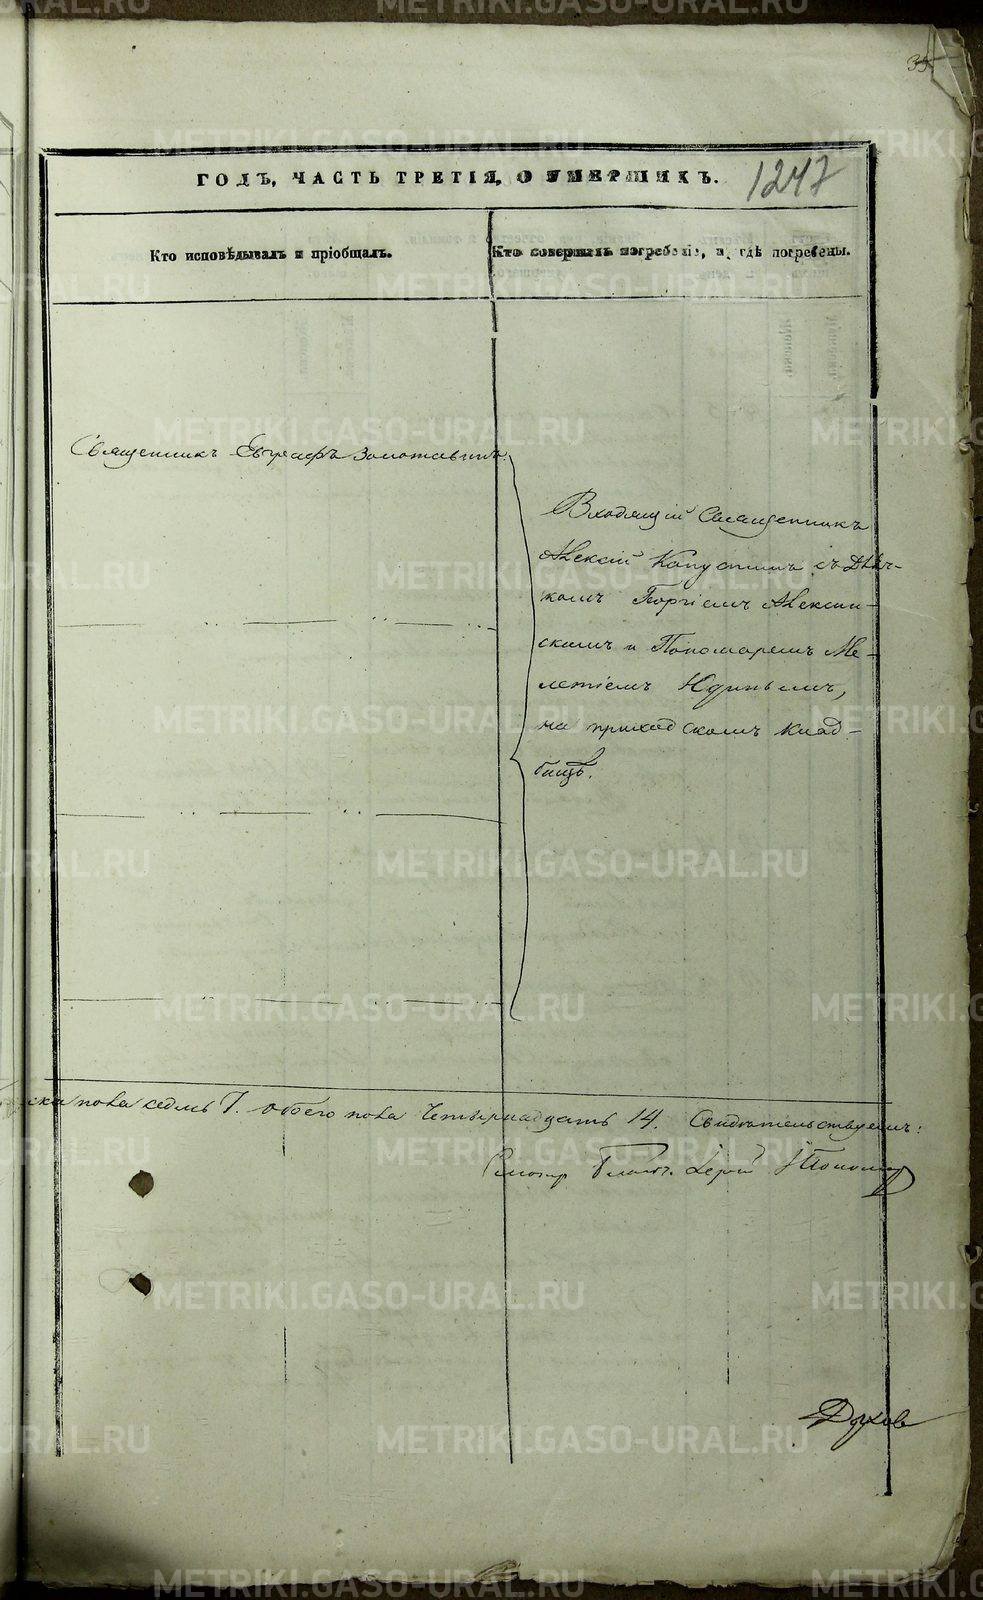 35
ГОДЪ, ЧАСТЬ ТРЕТІЯ, О УМЕРШИХЪ.
1247
Кто исповѣдывалъ и пріобщалъ.
Кто совершалъ погребеніе, и гдѣ погребены.
Священникъ Евграфъ Золотавинъ.
Входящій Священникъ
Алексій Капустинъ съ Дьяч-
комъ Георгіемъ Алексин-
скимъ и Пономаремъ Ме-
летіемъ Юдинымъ,
на приходскомъ клад-
бищѣ.
ска пола седмь 7. обоего пола Четырнадцать 14. Свидѣтельствуемъ:
Пономар
Духов
METRIKI.GASO-URAL.RU